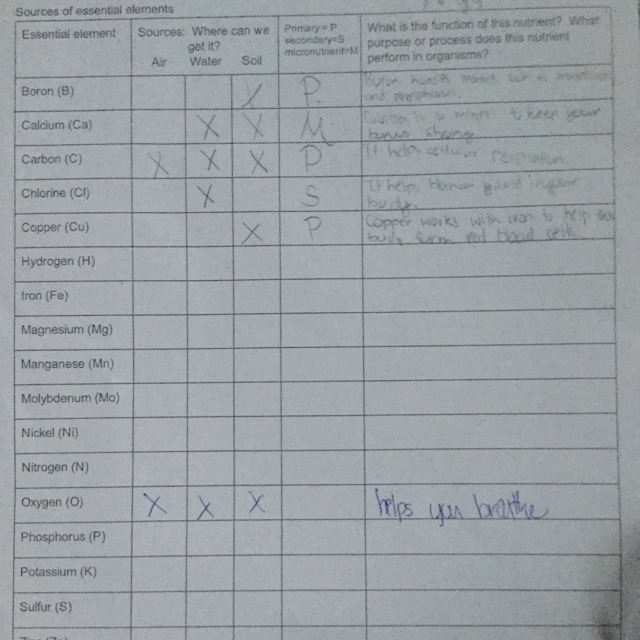 Sources of essential elements
Essential element
Sources: Where can we
get it?
Air Water Soil
Primary = P
secondary=S
micronutrient=M
What is the function of this nutrient? What
purpose or process does this nutrient
perform in organisms?
Boron (B) X P.
and phosphorus.
Calcium (Ca) X X M
is a mineral to keep your
strong
Carbon (C) X X X P It helps cellular respiration.
Chlorine (Cl) X S
It helps in your
body.
Copper (Cu) X P
Copper works with iron to help the
body form red blood cells.
Hydrogen (H)
Iron (Fe)
Magnesium (Mg)
Manganese (Mn)
Molybdenum (Mo)
Nickel (Ni)
Nitrogen (N)
Oxygen (O) X X X helps you breathe
Phosphorus (P)
Potassium (K)
Sulfur (S)